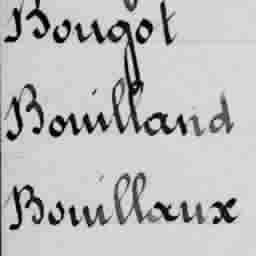 Bougot
Bouilland
Bouillaux